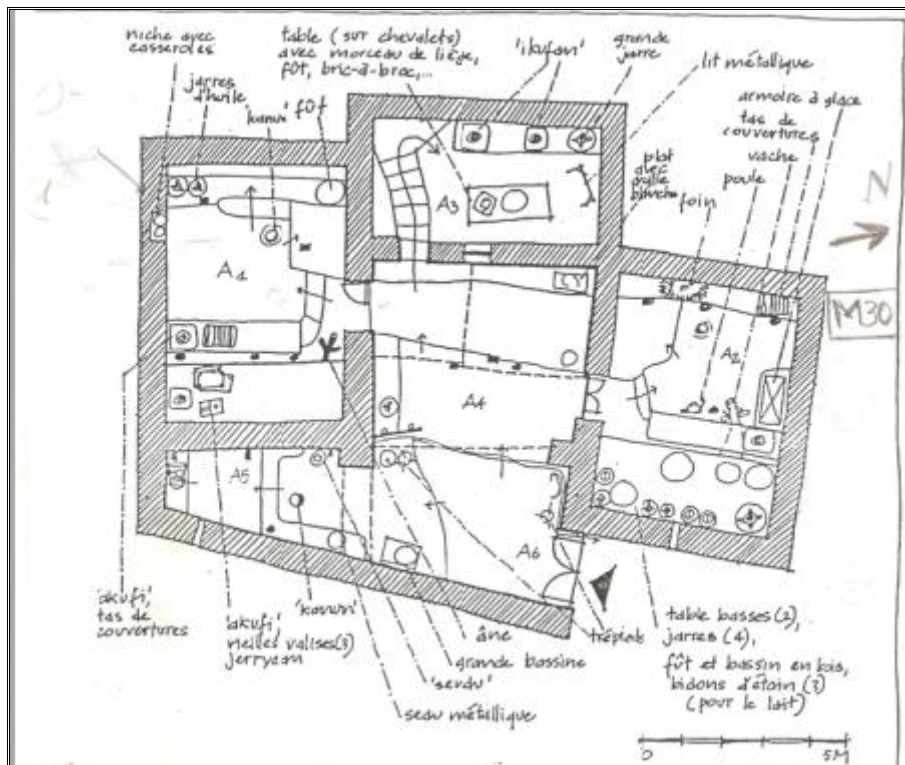 niche avec
casseroles
jarres
d'huile
'kanun'
fût
table (sur chevalets)
avec morceau de liège,
fût, bric-à-brac,...
'ikufan'
grande
jarre
lit métallique
armoire à glace
tas de
couvertures
vache
poule
plat
avec
foin
N
M30
A1
A2
A3
A4
A5
A6
'akufi',
tas de
couvertures
'akufi',
vieilles valises(3)
jerrycan
'kanun'
seau métallique
'serdu'
grande bassine
âne
trépieds
table basses (2),
jarres (4),
fût et bassin en bois,
bidons d'étain (3)
(pour le lait)
0
5M